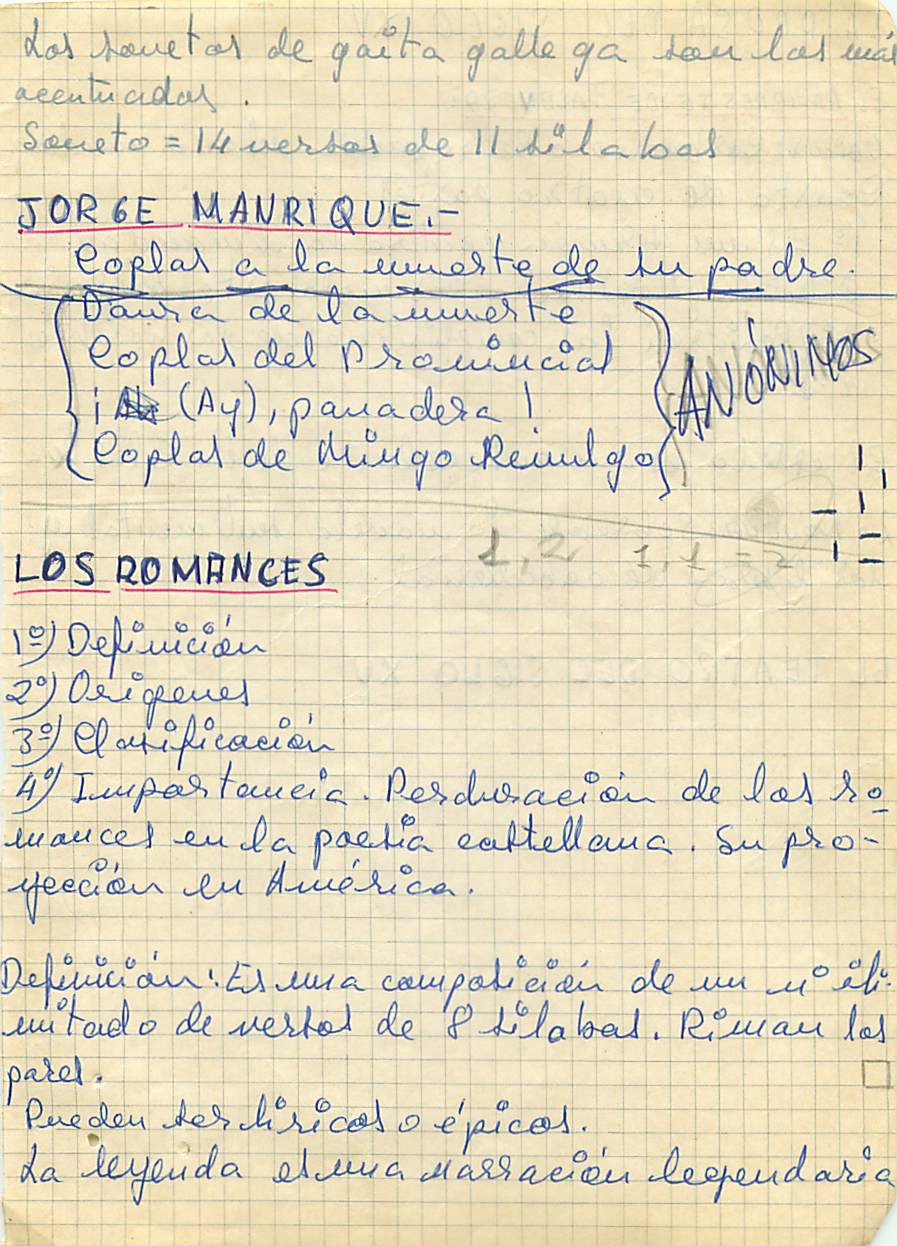 Los sonetos de gaita gallega son los más
acentuados.
Soneto = 14 versos de 11 sílabas
JORGE MANRIQUE.-
Coplas a la muerte de su padre.
Danza de la muerte
Coplas del Provincial
¡ (Ay), panadera!
Coplas de Mingo Revulgo
ANÓNIMOS
1,2 1,1 = 2
LOS ROMANCES
1º) Definición
2º) Orígenes
3º) Clasificación
4º) Importancia. Perduración de los ro-
mances en la poesía castellana. Su pro-
yección en América.
Definición: Es una composición de un nº ili-
mitado de versos de 8 sílabas. Riman los
pares.
Pueden ser líricos o épicos.
La leyenda es una narración legendaria